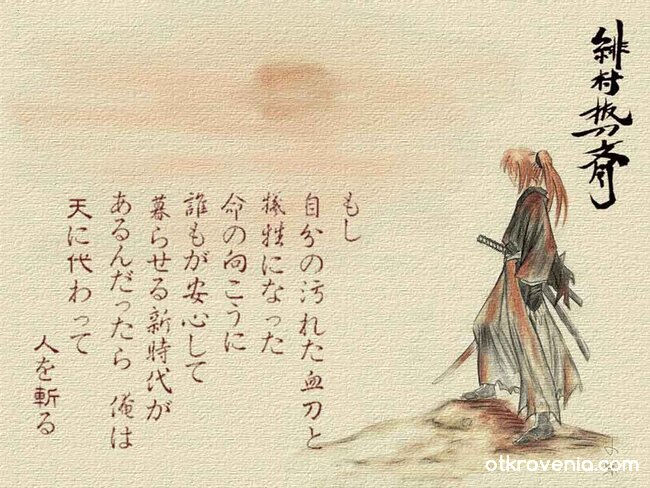 緋村抜刀斎
もし
自分の汚れた血刀と
犠牲になった
命の向こうに
誰もが安心して
暮らせる新時代が
あるんだったら 俺は
天に代わって
人を斬る
otkrovenia.com